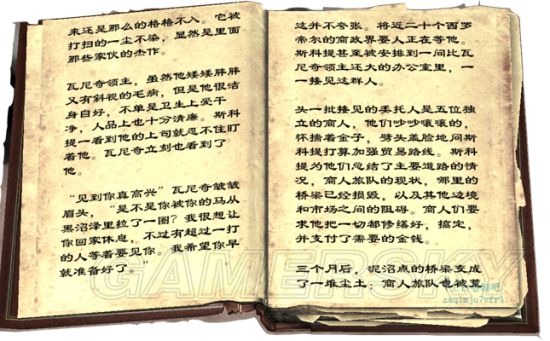 来还是那么的格格不入。它被
打扫的一尘不染，显然是里面
那些家伙的杰作。
瓦尼奇领主，虽然他矮矮胖胖
又有斜视的毛病，但是他很洁
身自好，不单是卫生上爱干
净，人品上也十分清廉。斯科
提一看到他的上司就忍不住盯
着他。瓦尼奇立刻也看到了
他。
“见到你真高兴”瓦尼奇皱皱
眉头，“是不是你被你的马从
黑沼泽里拉了一圈？我很想让
你回家休息，不过有超过一打
的人等着要见你。我希望你早
就准备好了。”
这并不夸张。将近二十个西罗
帝尔的商政界要人正在等他。
斯科提甚至被安排到一间比瓦
尼奇领主还大的办公室里，一
一接见这群人。
头一批接见的委托人是五位独
立的商人，他们吵吵嚷嚷的，
怀揣着金子，劈头盖脸地问斯
科提打算加强贸易路线。斯科
提为他们总结了主要道路的情
况，商人旅队的现状，哪里的
桥梁已经损毁，以及其他边境
和市场之间的阻碍。商人们要
求他把一切都修缮好，搞定，
并支付了需要的金钱。
三个月后，泥沼点的桥梁变成
了一堆尘土；商人旅队也被荒
GAMERSKY